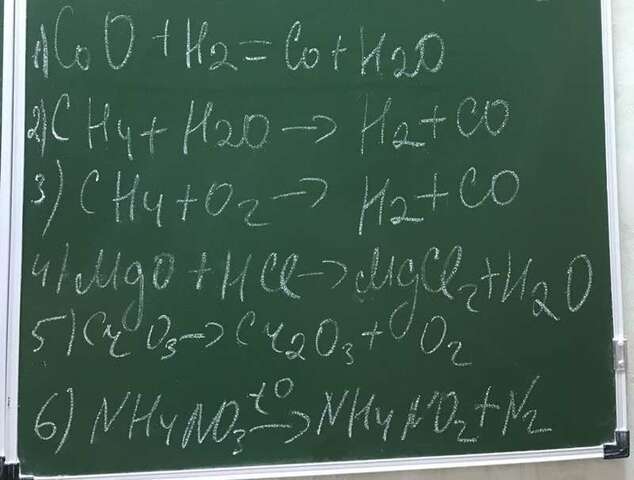 1) CoO + H2 = Co + H2O
2) CH4 + H2O → H2 + CO
3) CH4 + O2 → H2 + CO
4) MgO + HCl → MgCl2 + H2O
5) CrO3 → Cr2O3 + O2
6) NH4NO3 t° → NH4NO2 + N2